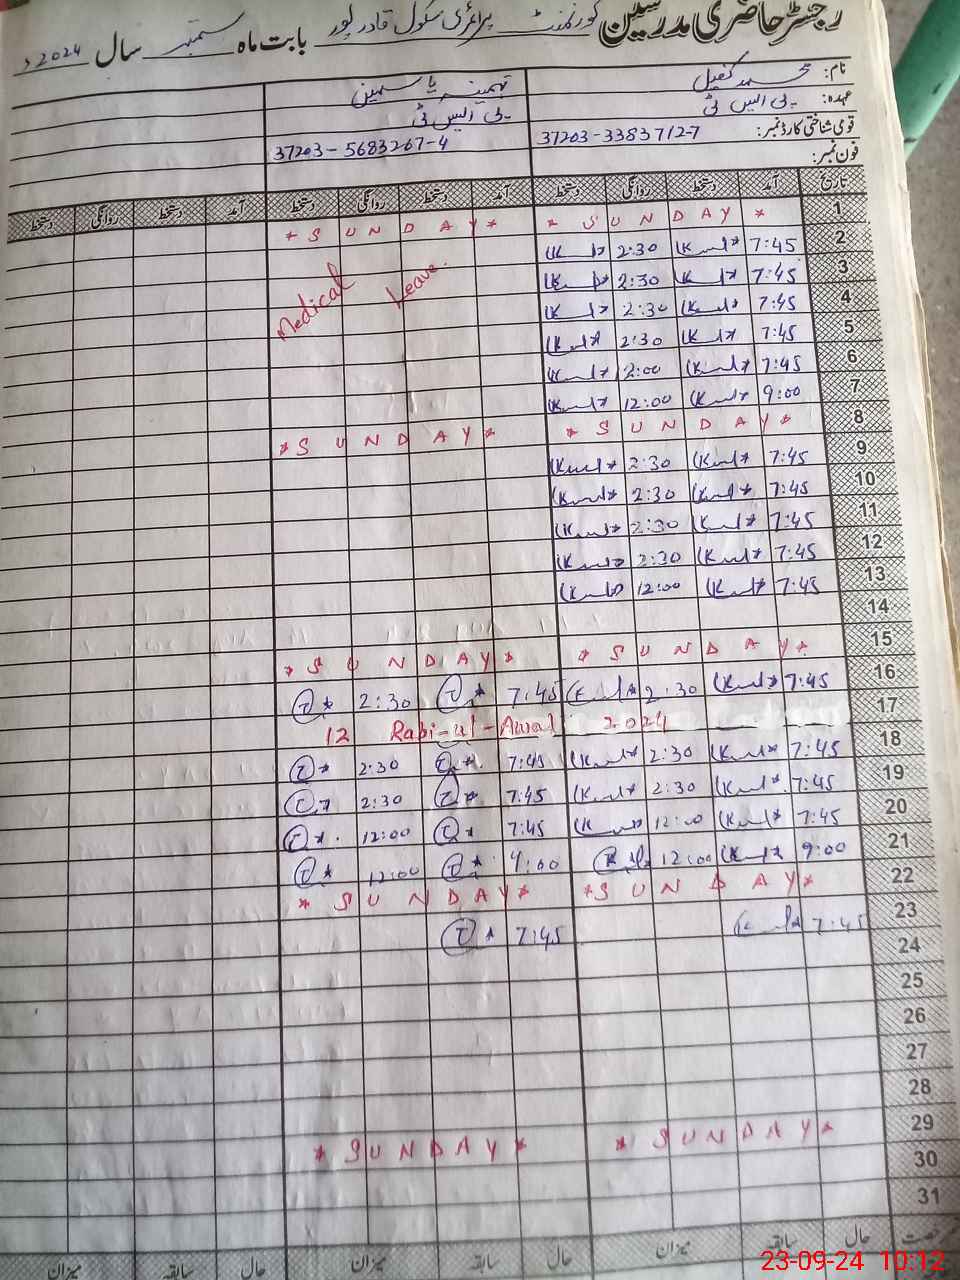 رجسٹر حاضری مدرسین گورنمنٹ پرائمری سکول قادر پور بابت ماہ ستمبر سال 2024ء
نام: محمد کفیل تہمینہ یاسمین
عہدہ: پی ایس ٹی پی ایس ٹی
قومی شناختی کارڈ نمبر: 37203-3383712-7 37203-5683267-4
فون نمبر:
تاریخ آمد دستخط روانگی دستخط آمد دستخط روانگی دستخط آمد دستخط روانگی دستخط
1 * SUNDAY * * SUNDAY *
2 7:45 2:30 Medical Leave.
3 7:45 2:30
4 7:45 2:30
5 7:45 2:30
6 7:45 2:00
7 9:00 12:00
8 * SUNDAY * * SUNDAY *
9 7:45 2:30
10 7:45 2:30
11 7:45 2:30
12 7:45 2:30
13 7:45 12:00
14
15 * SUNDAY * * SUNDAY *
16 7:45 2:30 7:45 2:30
17 12 Rabi-ul-Awal 2024
18 7:45 2:30 7:45 2:30
19 7:45 2:30 7:45 2:30
20 7:45 12:00 7:45 12:00
21 9:00 12:00 9:00 12:00
22 * SUNDAY * * SUNDAY *
23 7:45 7:45
24
25
26
27
28
29 * SUNDAY * * SUNDAY *
30
31
حال سابقہ میزان حال سابقہ میزان حال سابقہ میزان
23-09-24 10:12